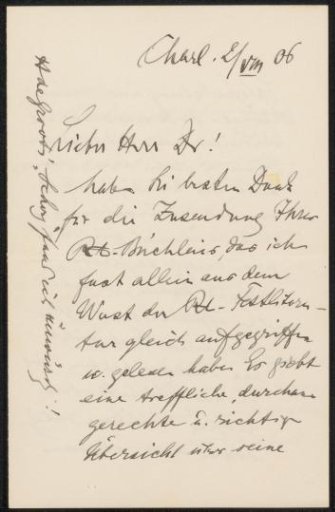 Charl. 2/VIII 06
Lieber Herr Dr!
haben Sie besten Dank
für die Zusendung Ihres
Rt-Büchleins, das ich
fast allein aus dem
Wust der Rt-Festlitera-
tur gleich aufgegriffen
u. gelesen habe. Es giebt
eine treffliche, durchaus
gerechte u. richtige
Übersicht über seine